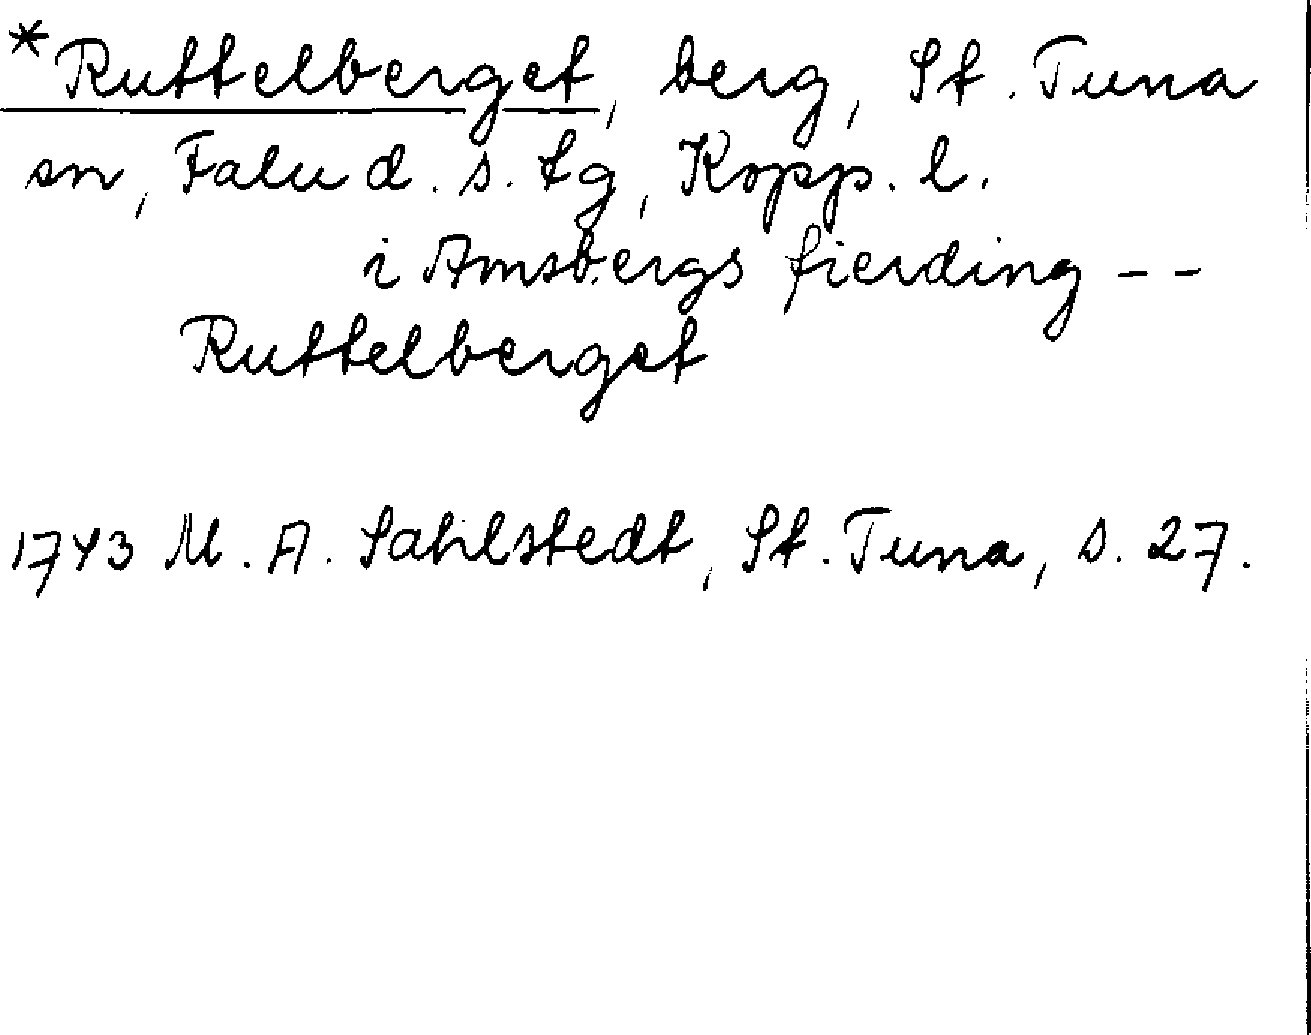 *Ruttelberget, berg, St. Tuna
sn, Falu d. s. tg, Kopp. l.
i Amsbergs fierding --
Ruttelberget
1743 M. A. Sahlstedt, St. Tuna, s. 27.